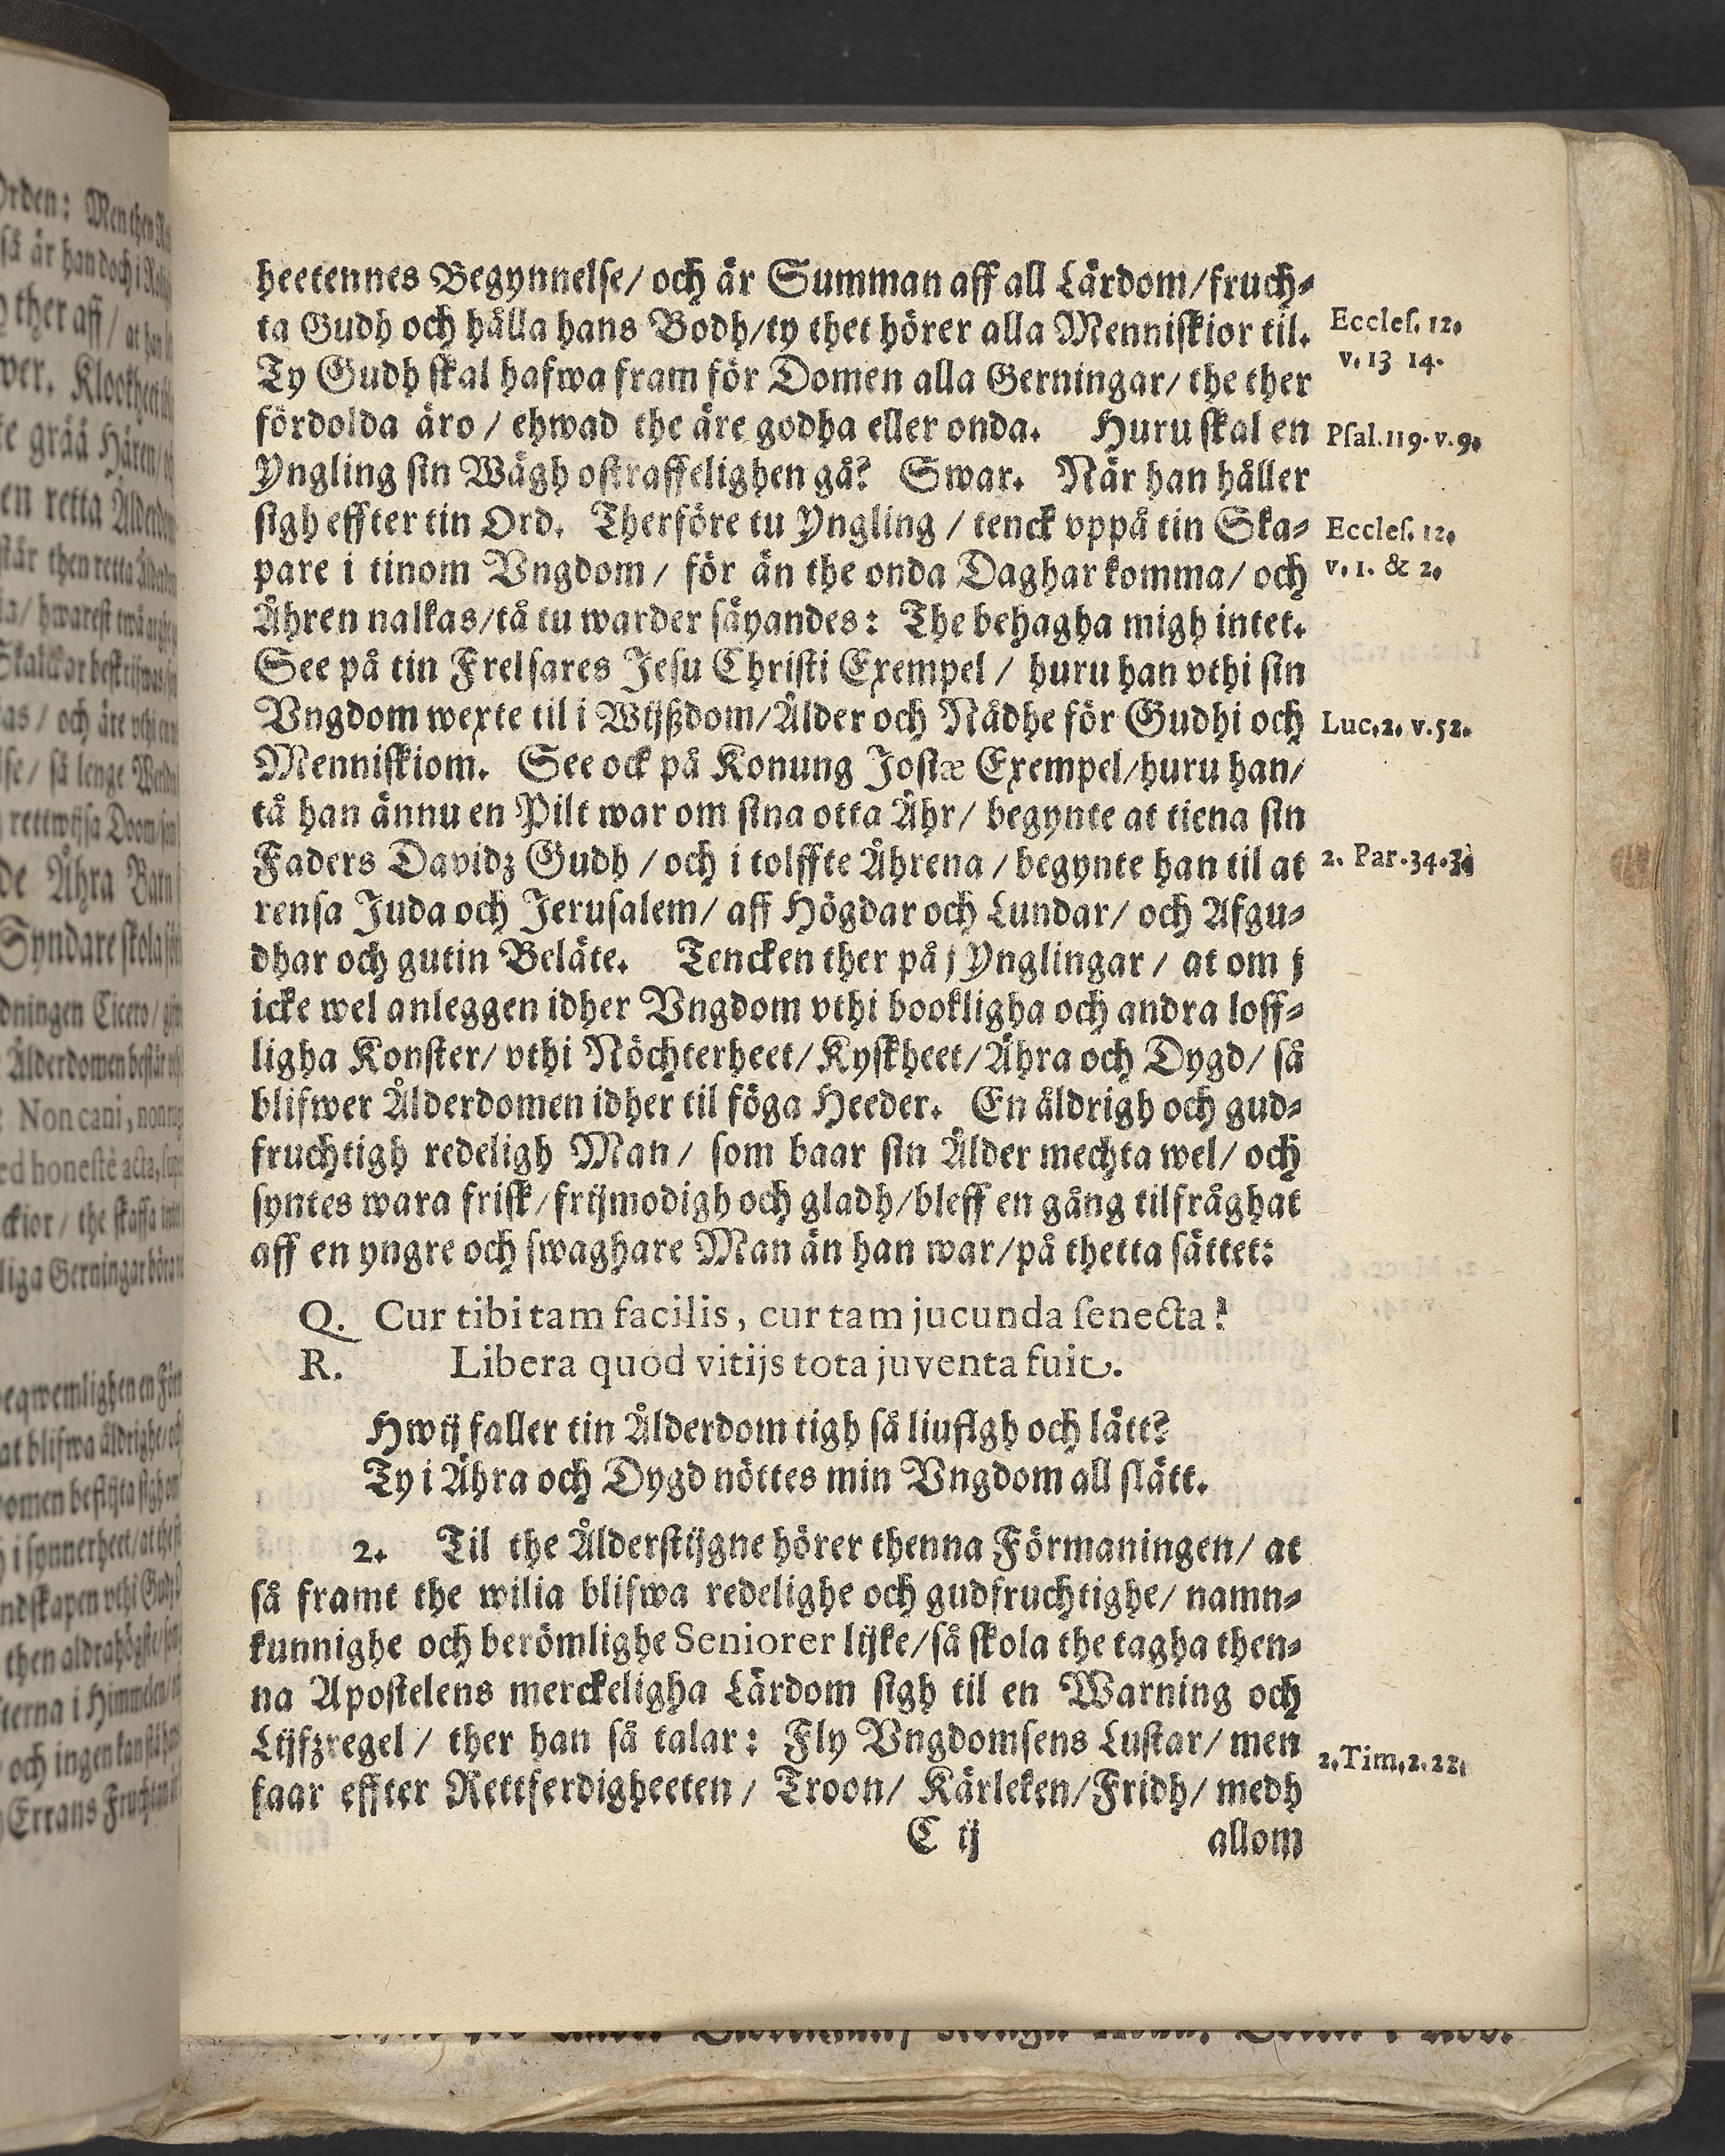 heetennes Begynnelse/ och är Summan aff all Lärdom/fruch-
ta Gudh och hålla hans Bodh/ty thet hörer alla Menniskior til.
Eccles. 12.
v. 13 14.
Ty Gudh skal hafwa fram för Domen alla Gerningar/ the ther
fördolda äro / ehwad the äre godha eller onda. Huru skal en
Psal. 119. v. 9.
Yngling sin Wägh ostraffelighen gå? Swar. När han håller
sigh effter tin Ord. Therföre tu Yngling / tenck vppå tin Ska-
Eccles. 12.
pare i tinom Vngdom/ för än the onda Daghar komma/ och
v. 1. & 2.
Åhren nalkas/tå tu warder säyandes: The behagha migh intet.
See på tin Frelsares Jesu Christi Exempel / huru han vthi sin
Vngdom wexte til i Wijßdom/Ålder och Nådhe för Gudhi och
Luc. 2. v. 52.
Menniskiom. See ock på Konung Josiæ Exempel/huru han/
tå han ännu en Pilt war om sina otta Åhr/ begynte at tiena sin
Faders Davidz Gudh / och i tolffte Åhrena / begynte han til at
2. Par. 34. 3.
rensa Juda och Jerusalem/ aff Högdar och Lundar/ och Afgu-
dhar och gutin Beläte. Tencken ther på j Ynglingar / at om j
icke wel anleggen idher Vngdom vthi bookligha och andra loff-
ligha Konster/ vthi Nöchterheet/ Kyskheet/ Ähra och Dygd/ så
blifwer Ålderdomen idher til föga Heeder. En åldrigh och gud-
fruchtigh redeligh Man/ som baar sin Ålder mechta wel/ och
syntes wara frisk/frijmodigh och gladh/bleff en gång tilfråghat
aff en yngre och swaghare Man än han war/på thetta sättet:
Q. Cur tibi tam facilis, cur tam jucunda senecta?
R. Libera quod vitijs tota juventa fuit.
Hwij faller tin Ålderdom tigh så liufligh och lätt?
Ty i Ähra och Dygd nöttes min Vngdom all slätt.
2. Til the Ålderstijgne hörer thenna Förmaningen/ at
så framt the wilia blifwa redelighe och gudfruchtighe/ namn-
kunnighe och berömlighe Seniorer lijke/så skola the tagha then-
na Apostelens merckeligha Lärdom sigh til en Warning och
Lijfzregel / ther han så talar: Fly Vngdomsens Lustar/ men
2. Tim. 2. 22.
faar effter Rettferdigheeten / Troon/ Kärleken/Fridh/ medh
C ij allom